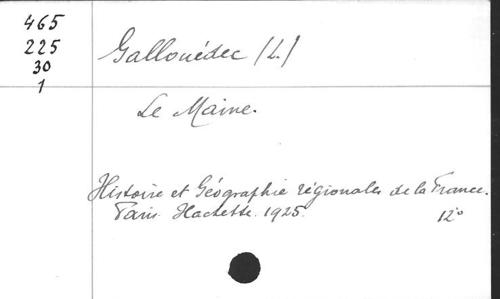 465
225
30
1
Gallouédec (L.)
Le Maine.
Histoire et Géographie régionales de la France.
Paris. Hachette. 1925. 12°